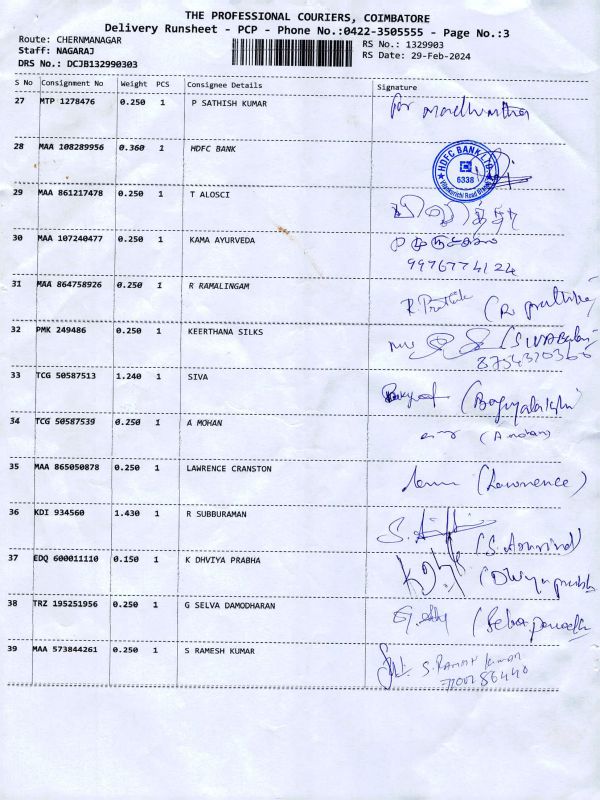 THE PROFESSIONAL COURIERS, COIMBATORE
Delivery Runsheet - PCP - Phone No.:0422-3505555 - Page No.:3
Route: CHERNMANAGAR
Staff: NAGARAJ
DRS No.: DCJB132990303
RS No.: 1329903
RS Date: 29-Feb-2024
S No Consignment No Weight PCS Consignee Details Signature
27 MTP 1278476 0.250 1 P SATHISH KUMAR for
28 MAA 108289956 0.360 1 HDFC BANK
HDFC BANK LTD.
6338
29 MAA 861217478 0.250 1 T ALOSCI
30 MAA 107240477 0.250 1 KAMA AYURVEDA
9976774124
31 MAA 864758926 0.250 1 R RAMALINGAM
32 PMK 249486 0.250 1 KEERTHANA SILKS
33 TCG 50587513 1.240 1 SIVA
34 TCG 50587539 0.250 1 A MOHAN (A mohan)
35 MAA 865050878 0.250 1 LAWRENCE CRANSTON (Lawrence)
36 KDI 934560 1.430 1 R SUBBURAMAN
37 EDQ 600011110 0.150 1 K DHVIYA PRABHA
38 TRZ 195251956 0.250 1 G SELVA DAMODHARAN
39 MAA 573844261 0.250 1 S RAMESH KUMAR